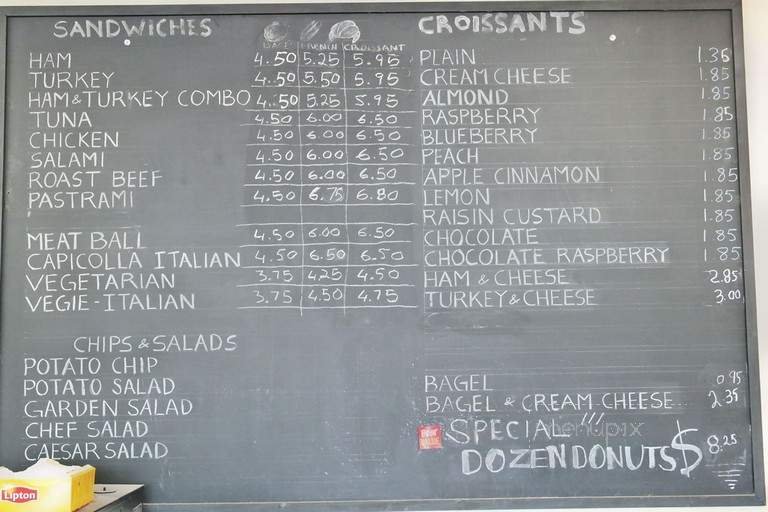 SANDWICHES
BAGEL FRENCH CROISSANT
HAM 4.50 5.25 5.95
TURKEY 4.50 5.50 5.95
HAM & TURKEY COMBO 4.50 5.25 5.95
TUNA 4.50 6.00 6.50
CHICKEN 4.50 6.00 6.50
SALAMI 4.50 6.00 6.50
ROAST BEEF 4.50 6.00 6.50
PASTRAMI 4.50 6.75 6.80
MEAT BALL 4.50 6.00 6.50
CAPICOLLA ITALIAN 4.50 6.50 6.50
VEGETARIAN 3.75 4.25 4.50
VEGIE-ITALIAN 3.75 4.50 4.75
CHIPS & SALADS
POTATO CHIP
POTATO SALAD
GARDEN SALAD
CHEF SALAD
CAESAR SALAD
Lipton
CROISSANTS
PLAIN 1.36
CREAM CHEESE 1.85
ALMOND 1.85
RASPBERRY 1.85
BLUEBERRY 1.85
PEACH 1.85
APPLE CINNAMON 1.85
LEMON 1.85
RAISIN CUSTARD 1.85
CHOCOLATE 1.85
CHOCOLATE RASPBERRY 1.85
HAM & CHEESE 2.85
TURKEY & CHEESE 3.00
BAGEL 0.95
BAGEL & CREAM CHEESE 2.39
SPECIAL !!!
menupix
DOZEN DONUTS $ 8.25